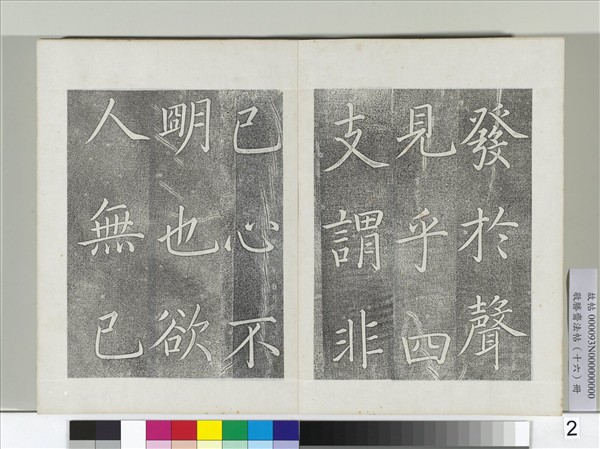 發於聲
見乎四
支謂非
己心不
明也欲
人無己
故帖000093N000000000
敬勝齋法帖（十六）冊
2